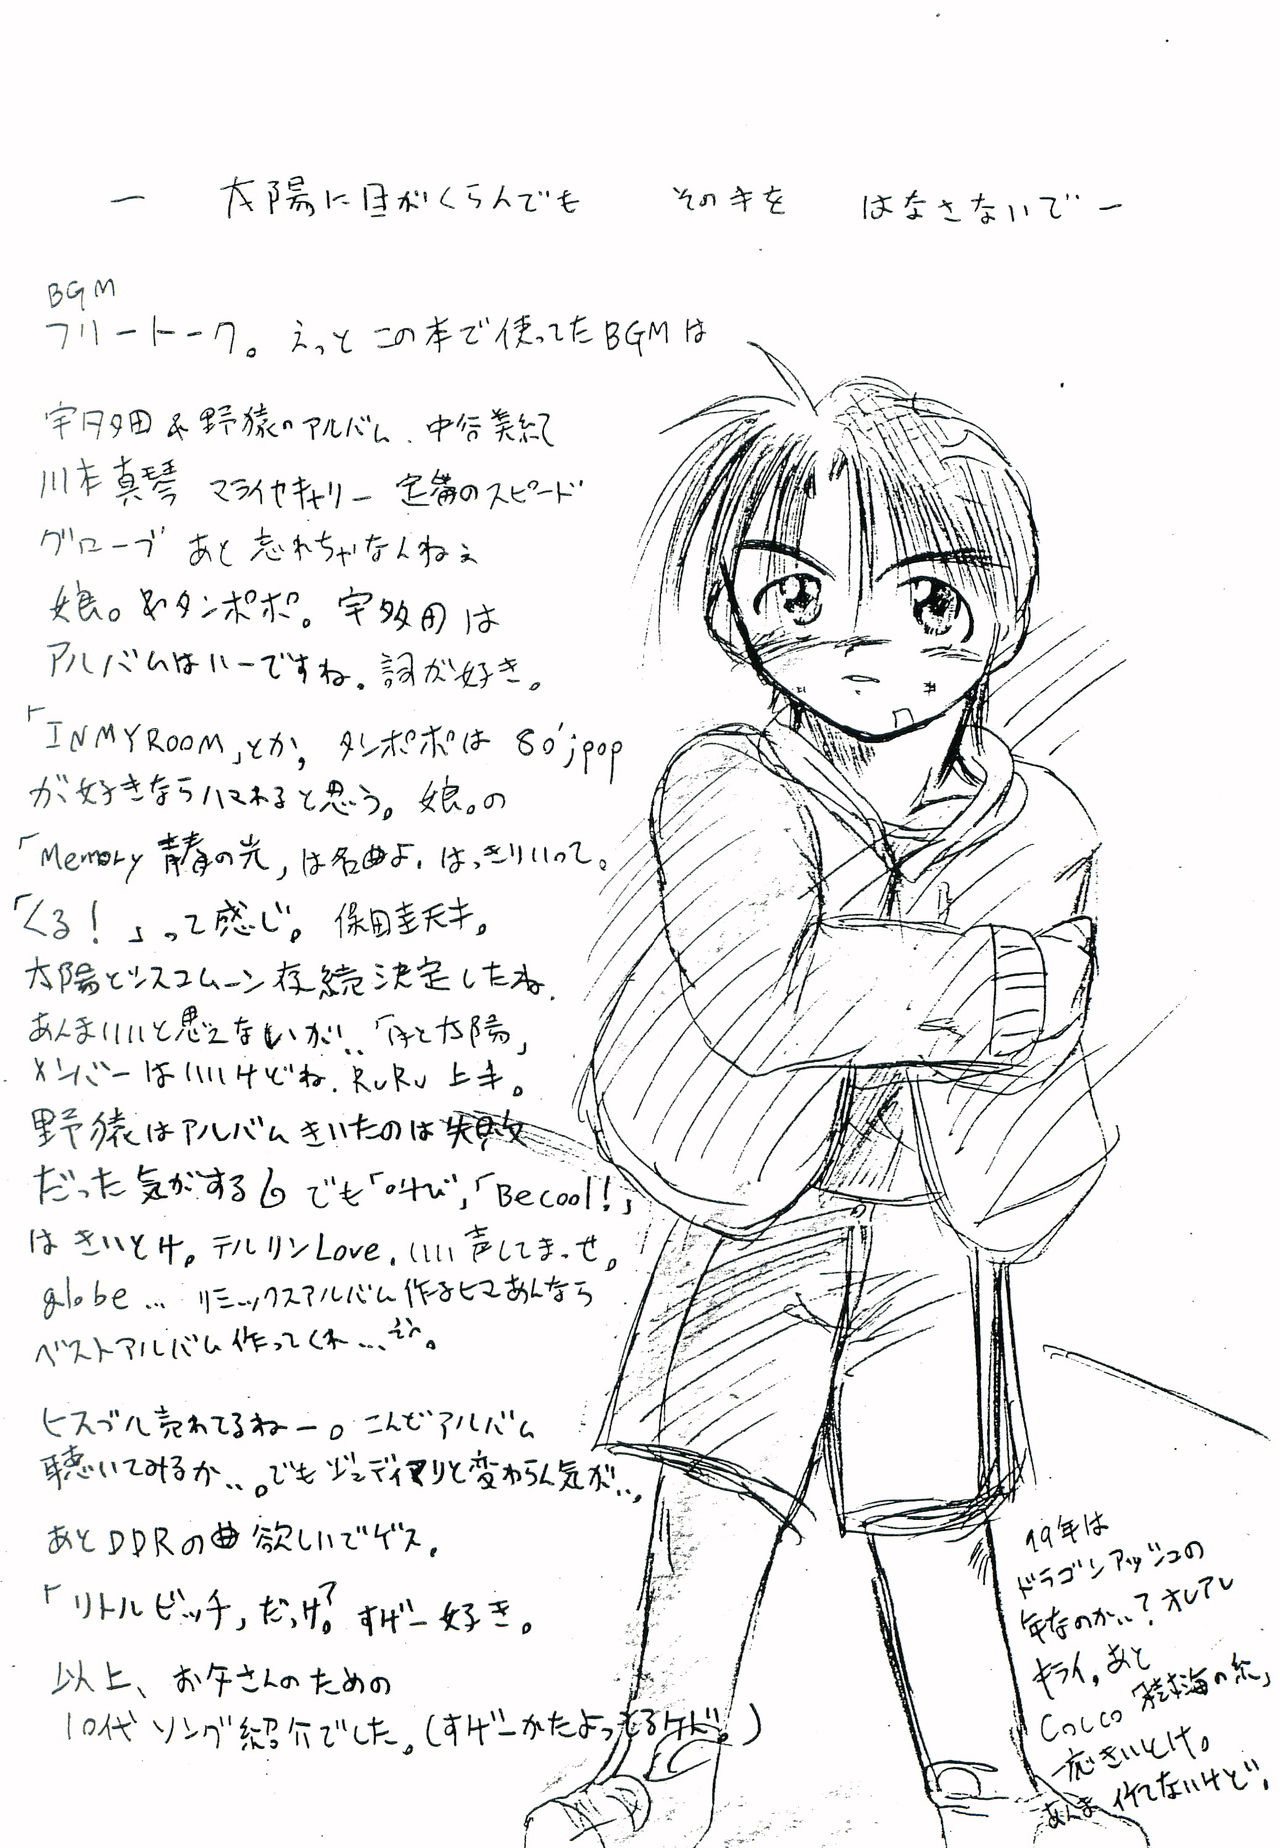 ー 太陽に目がくらんでも その手を はなさないでー
BGM
フリートーク。えっと この本で使ってたBGMは
宇多田&野猿のアルバム、中谷美紀
川本真琴 マライヤキャリー 定番のスピード
グローブ あと忘れちゃなんねぇ
娘。&タンポポ。宇多田は
アルバムはいーですね。詞が好き。
「IN MY ROOM」とか、タンポポは 80'jpop
が好きならハマれると思う。娘。の
「Memory 青春の光」は名曲よ、はっきりいって。
「くる!」って感じ。保田圭天才。
太陽とシスコムーン存続決定したね、
あんまいいと思えないが‥「月と太陽」
メンバーはいいけどね、RuRu 上手。
野猿はアルバムきいたのは失敗
だった気がする でも「叫び」「Be cool!」
はきいとけ。テルリンLove、いい声してまっせ。
globe… リミックスアルバム作るヒマあんなら
ベストアルバム作ってくれ…
ヒスブル売れてるねー。こんどアルバム
聴いてみるか‥。でもジュディマリと変わらん気が‥。
あとDDRの曲欲しいでゲス。
「リトルビッチ」だっけ?すげー好き。
以上、お父さんのための
10代ソング紹介でした。(すげーかたよってるケド。)
99年は
ドラゴンアッシュの
年なのか‥?オレアレ
キライ。あと
Cocco 「樹海の糸」
一応きいとけ。
あんま似てないけど。